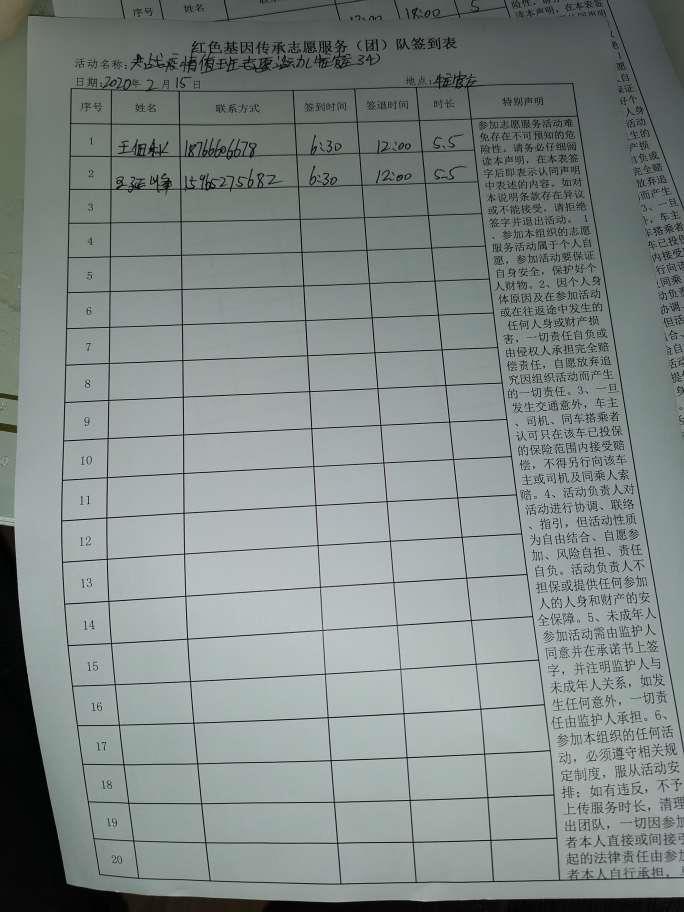 序号
姓名
18:00
5
红色基因传承志愿服务（团）队签到表
活动名称:
日期:2020年2月15日
地点:
序号 姓名 联系方式 签到时间 签退时间 时长 特别声明
1 18766606678 6:30 12:00 5.5
2 15965275682 6:30 12:00 5.5
3
4
5
6
7
8
9
10
11
12
13
14
15
16
17
18
19
20
参加志愿服务活动难
免存在不可预知的危
险性，请务必仔细阅
读本声明，在本表签
字后即表示认同声明
中表述的内容。如对
本说明条款存在异议
或不能接受，请拒绝
签字并退出活动。 1
、参加本组织的志愿
服务活动属于个人自
愿，参加活动要保证
自身安全，保护好个
人财物。2、因个人身
体原因及在参加活动
或在往返途中发生的
任何人身或财产损
害，一切责任自负或
由侵权人承担完全赔
偿责任，自愿放弃追
究因组织活动而产生
的一切责任。3、一旦
发生交通意外，车主
、司机、同车搭乘者
认可只在该车已投保
的保险范围内接受赔
偿，不得另行向该车
主或司机及同乘人索
赔。4、活动负责人对
活动进行协调、联络
、指引，但活动性质
为自由结合、自愿参
加、风险自担、责任
自负。活动负责人不
担保或提供任何参加
人的人身和财产的安
全保障。5、未成年人
参加活动需由监护人
同意并在承诺书上签
字，并注明监护人与
未成年人关系，如发
生任何意外，一切责
任由监护人承担。6、
参加本组织的任何活
动，必须遵守相关规
定制度，服从活动安
排；如有违反，不予
上传服务时长，清理
出团队，一切因参加
者本人直接或间接引
起的法律责任由参加
者本人自行承担，